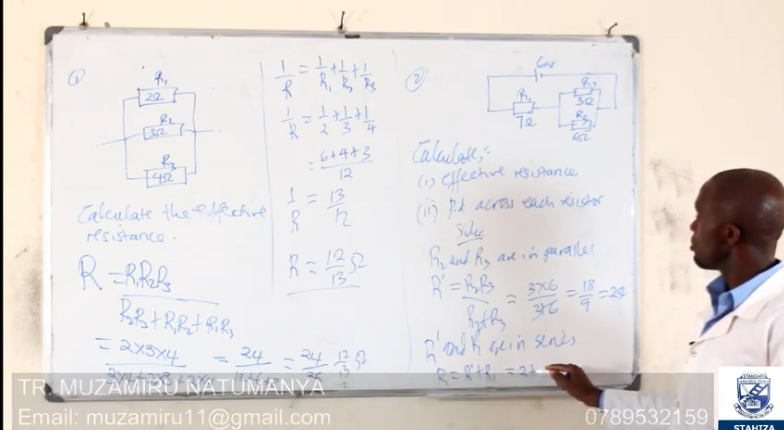 ①
R₁
2Ω
R₂
3Ω
R₃
4Ω
Calculate the effective
resistance.
R = R₁R₂R₃
R₂R₃ + R₁R₂ + R₁R₃
= 2×3×4
= 24
= 24
12
13
Ω
1/R = 1/R₁ + 1/R₂ + 1/R₃
1/R = 1/2 + 1/3 + 1/4
= 6+4+3
12
1/R = 13/12
R = 12/13 Ω
②
R₁
7Ω
3Ω
R₃
6Ω
Calculate;-
(i) effective resistance
(ii) p.d across each resistor
Soln
R₂ and R₃ are in parallel
R' = R₂R₃
R₂+R₃
= 3×6
3+6
= 18/9 = 2Ω
R' and R₁ are in series
R = R' + R₁ = 2+
TR. MUZAMIRU NATUMANYA
Email: muzamiru11@gmail.com
0789532159
STAHIZA